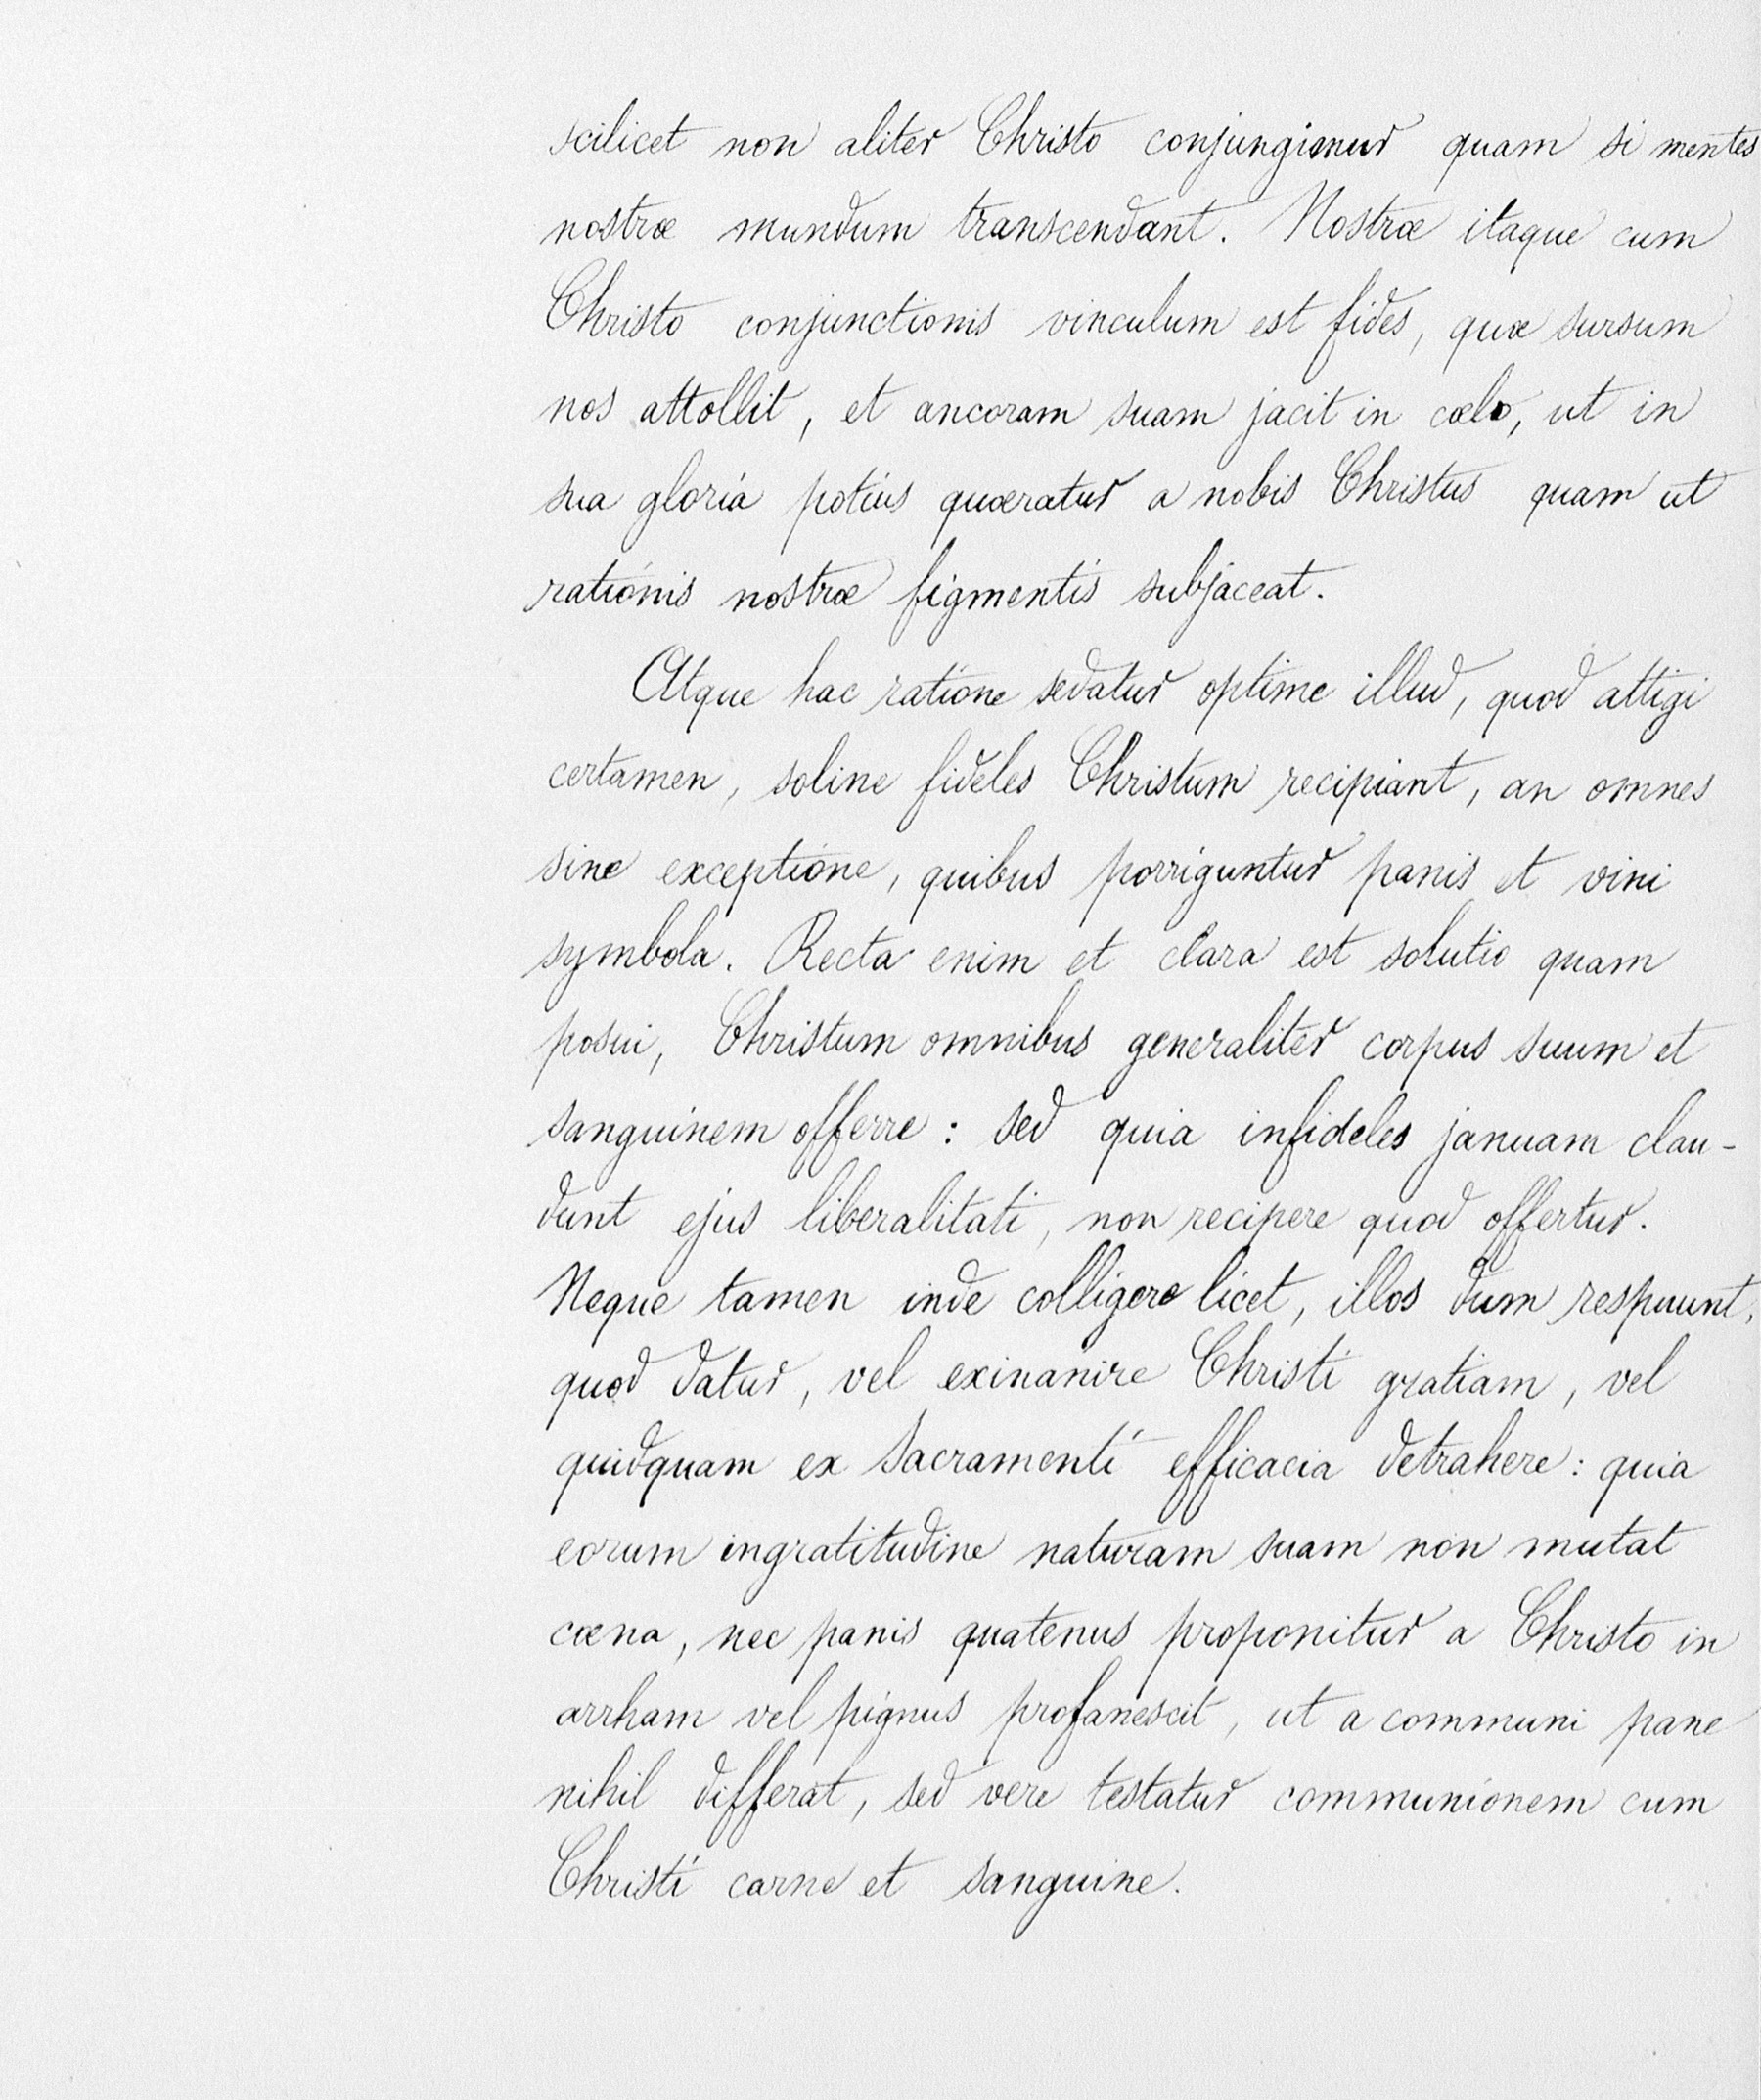 scilicet non aliter Christo conjungimur quam si mentes
nostræ mundum transcendant. Nostræ itaque cum
Christo conjunctionis vinculum est fides, quæ sursum
nos attollit, et ancoram suam jacit in cælo, ut in
sua gloria potius quæratur a nobis Christus quam ut
rationis nostræ figmentis subjaceat.
Atque hac ratione sedatur optime illud, quod attigi
certamen, soline fideles Christum recipiant, an omnes
sine exceptione, quibus porriguntur panis et vini
symbola. Recta enim et clara est solutio quam
posui, Christum omnibus generaliter corpus suum et
sanguinem offerre : sed quia infideles januam clau-
dunt ejus liberalitati, non recipere quod offertur.
Neque tamen inde colligere licet, illos dum respuunt,
quod datur, vel exinanire Christi gratiam, vel
quidquam ex sacramenti efficacia detrahere : quia
eorum ingratitudine naturam suam non mutat
cœna, nec panis quatenus proponitur a Christo in
arrham vel pignus profanescit, ut a communi pane
nihil differat, sed vere testatur communionem cum
Christi carne et sanguine.